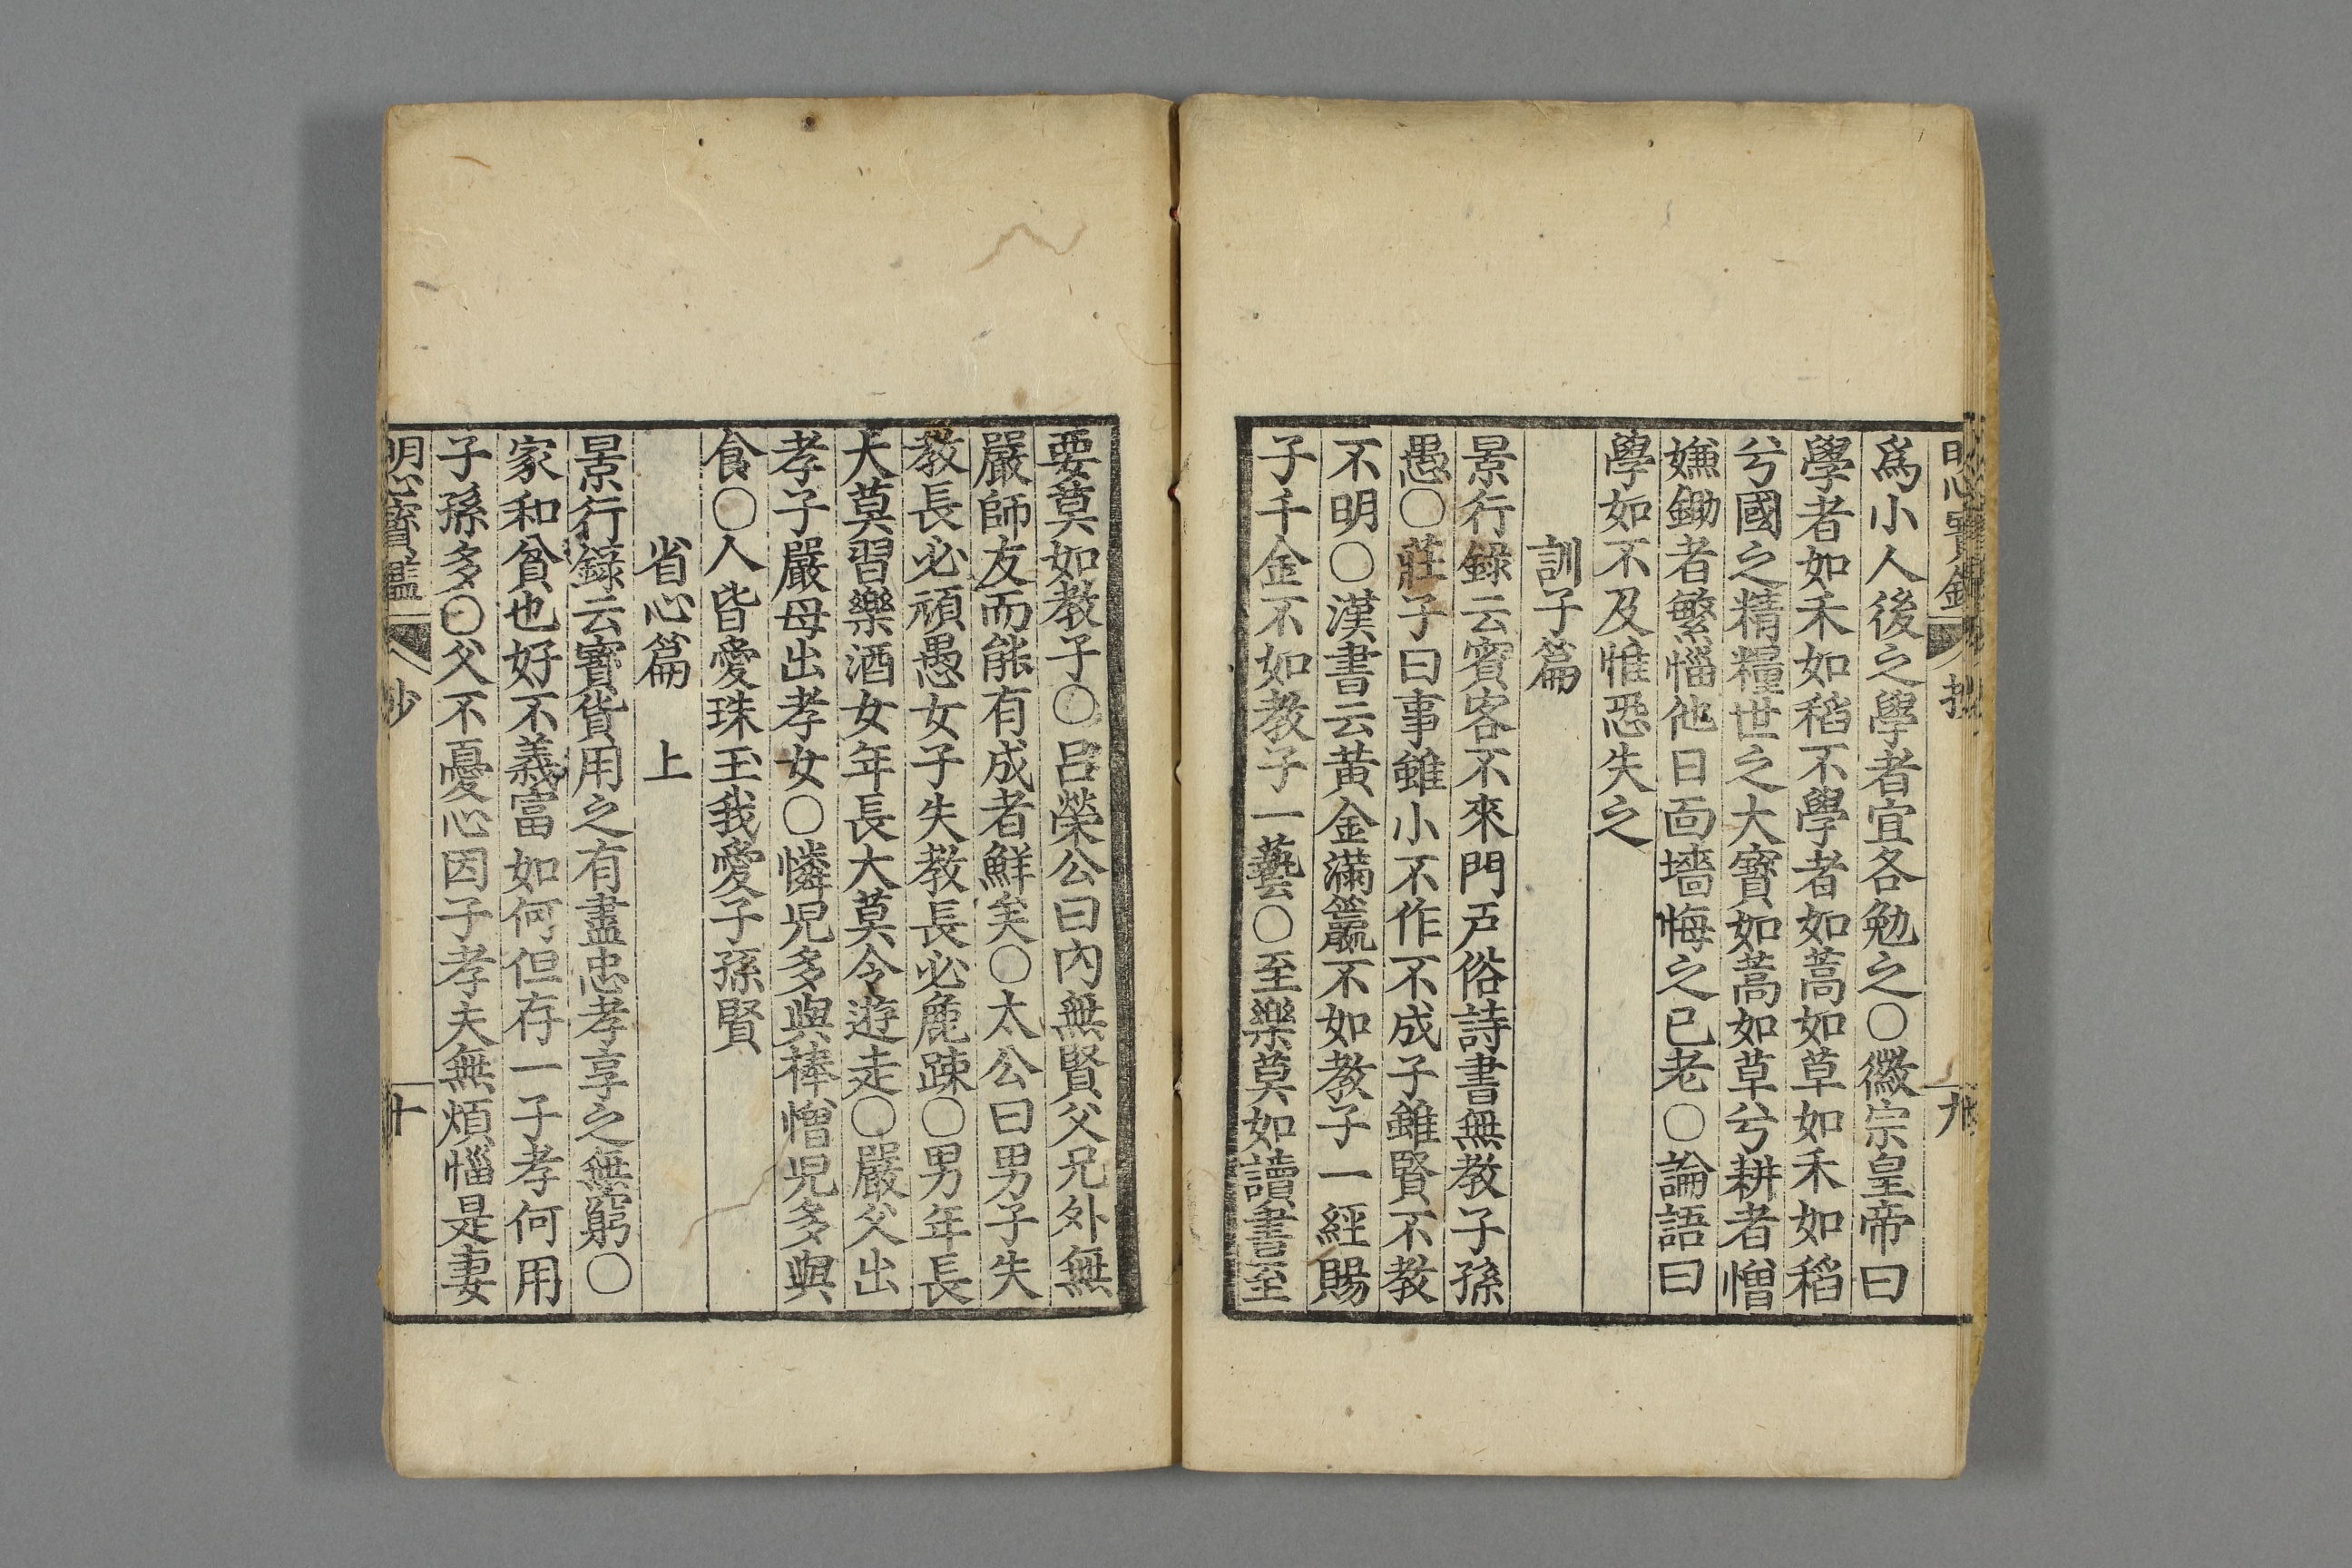 明心寶鑑 抄 九
爲小人後之學者宜各勉之○徽宗皇帝曰
學者如禾如稻不學者如蒿如草如禾如稻
兮國之精糧世之大寶如蒿如草兮耕者憎
嫌鋤者繁惱他日面墻悔之已老○論語曰
學如不及惟恐失之
訓子篇
景行錄云賓客不來門戶俗詩書無教子孫
愚○莊子曰事雖小不作不成子雖賢不教
不明○漢書云黃金滿籯不如教子一經賜
子千金不如教子一藝○至樂莫如讀書至
要莫如教子○呂榮公曰內無賢父兄外無
嚴師友而能有成者鮮矣○太公曰男子失
教長必頑愚女子失教長必麁踈○男年長
大莫習樂酒女年長大莫令遊走○嚴父出
孝子嚴母出孝女○憐児多與棒憎児多與
食○人皆愛珠玉我愛子孫賢
省心篇 上
景行錄云寶貨用之有盡忠孝享之無窮○
家和貧也好不義富如何但存一子孝何用
子孫多○父不憂心因子孝夫無煩惱是妻
明心寶鑑 抄 十